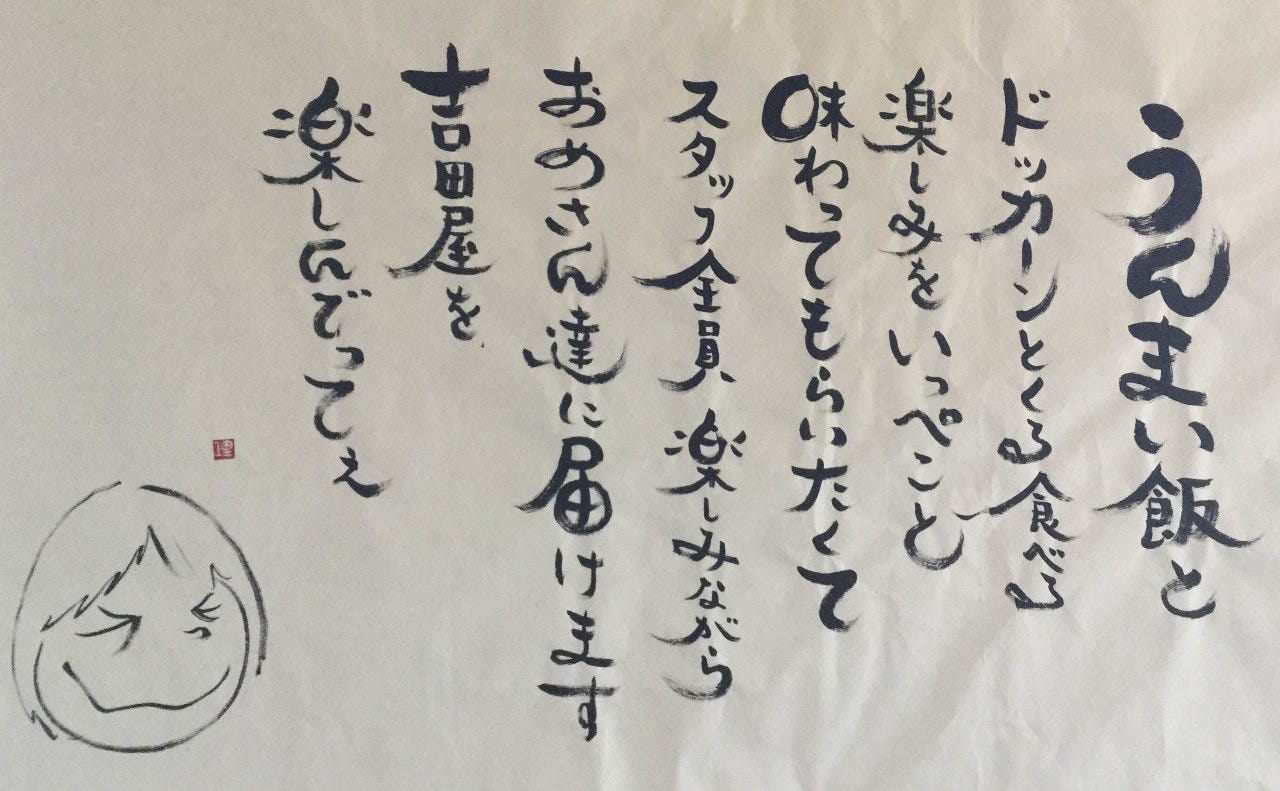 うんまい飯と
ドッカーンとくる食べる
楽しみをいっぺこと
味わってもらいたくて
スタッフ全員、楽しみながら
おめさん達に届けます
吉田屋を
楽しんでってぇ
理